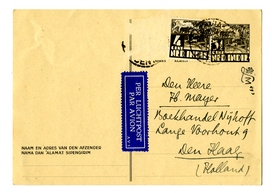 NED INDIE
NED INDIE
PER LUCHTPOST
PAR AVION
Den Heere
Th. Mayer
Boekhandel Nijhoff
Lange Voorhout 9
Den Haag
(Holland)
NAAM EN ADRES VAN DEN AFZENDER
NAMA DAN ALAMAT SIPENGIRIM